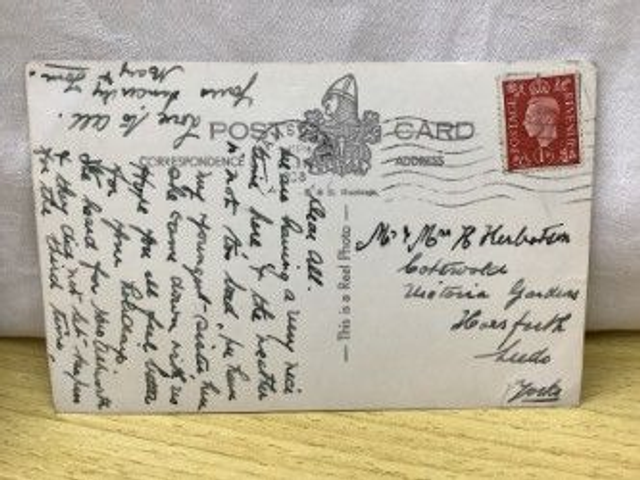 POST CARD
CORRESPONDENCE
ADDRESS
This is a Real Photo
POSTAGE
REVENUE
Dear All.
We are having a very nice
time here & the weather
is not too bad, we have
my youngest sister here
she came down with us
Hope you all feel better
for your
for Mrs
& they did not
for the third time.
Love to all.
Yours Sincerely
Mary &
Mr & Mrs H Herbotson
Cotswold
Victoria Gardens
Horsforth
Leeds
Yorks